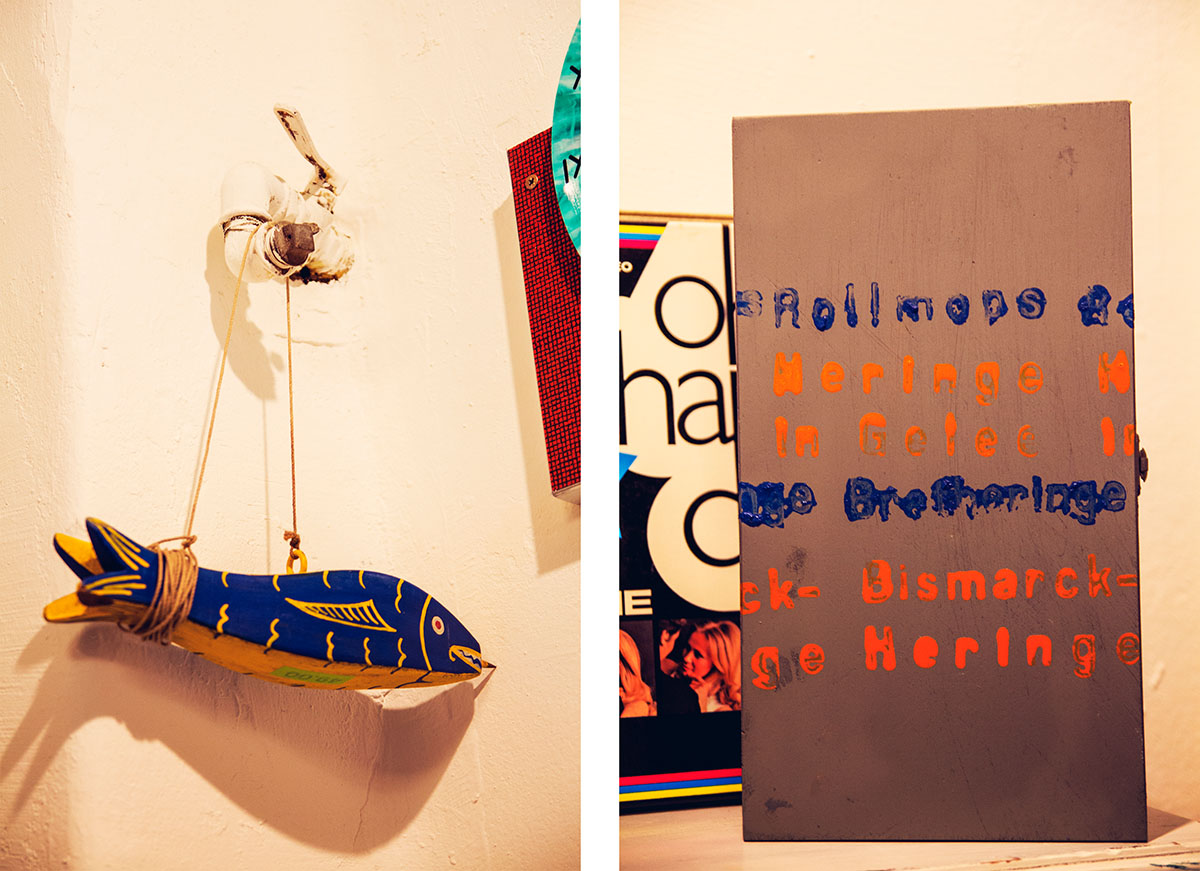 X
IX
39,00
Rollmops Ro
Heringe H
in Gelee in
nge Bratheringe
ck- Bismarck-
ge Heringe